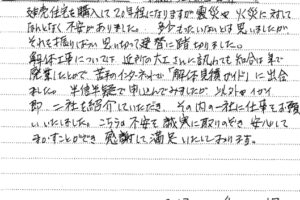 建売住宅を購入して20年程になりますが震災や火災に対して
なんとなく不安がありました。多少もったいないとは思いましたが
それを振り払い思い切って建替に踏切りました。
解体工事については近所の大工さんに訊いても知合は年で
廃業したとので苦手のインターネットで「解体見積ガイド」に出会
ました。半信半疑で申込んでみましたが以外やイガイ
即二社を紹介していただき、その内の一社に仕事をお願
いいたしました。こちらの不安を誠実に取りのぞき安心して
まかすことができ感謝して満足いたしております。